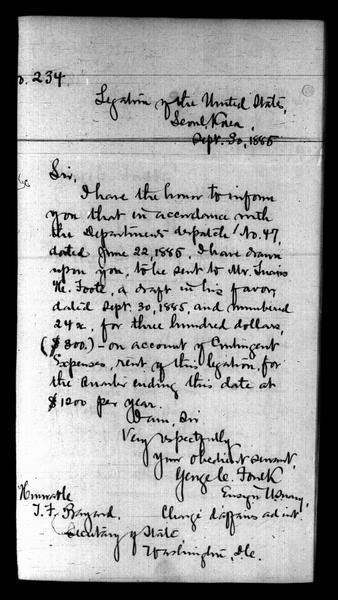 o. 234
Legation of the United States,
Seoul, Korea.
Sept. 30, 1885
Sir,
I have the honor to inform
you that in accordance with
the Department's despatch No. 47,
dated June 22, 1885, I have drawn
upon you, to be sent to Mr. Lucius
H. Foote, a draft in his favor,
dated Sept. 30, 1885, and numbered
24x, for three hundred dollars,
($300.) - on account of Contingent
Expenses, rent of this legation for
the Quarter ending this date at
$1200 per year.
I am, Sir
Very respectfully
Your obedient servant,
George C. Foulk
Ensign U.S. Navy,
Chargé d'affaires ad int.
Honorable
T. F. Bayard.
Secretary of State,
Washington, D.C.